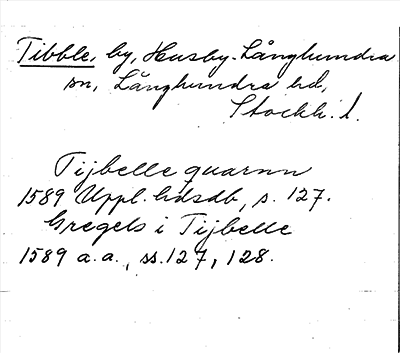 Tibble, by, Husby-Långhundra
sn, Långhundra hd,
Stockh. l.
Tijbelle quarnn
1589 Uppl. hdsdb, s. 127.
Gregels i Tijbelle
1589 a.a., ss. 127, 128.